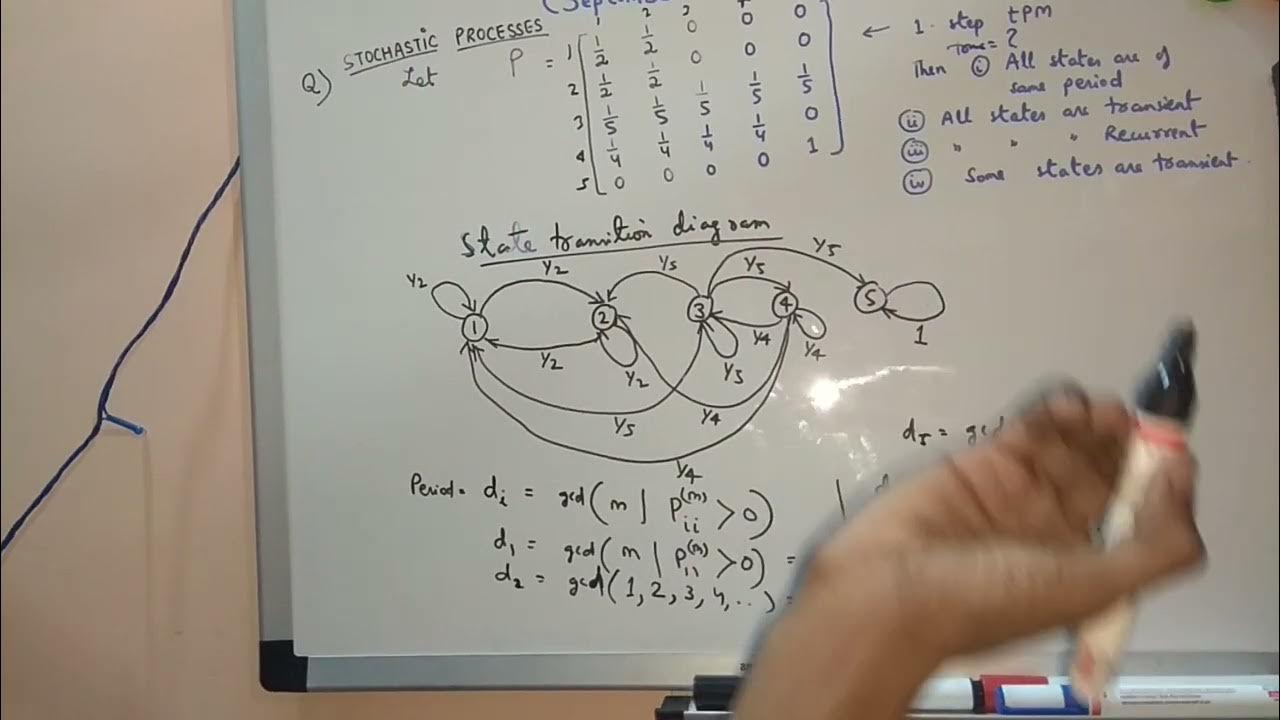 (Septem
STOCHASTIC PROCESSES
Q) Let P =
1 2 3
1 1/2 1/2 0 0 0
2 1/2 1/2 0 0 0
3 1/5 1/5 1/5 1/5 1/5
4 1/4 1/4 1/4 1/4 0
5 0 0 0 0 1
← 1-step tPM
Then (i) All states are of
same period
(ii) All states are transient
(iii) " " " Recurrent
(iv) Some states are transient.
State transition diagram
1/2 1/2 1/5 1/5 1/5
1 2 3 4 5
1/2 1/2 1/5 1/4 1/4 1
1/5 1/4
1/4
d5 = gcd
Period = di = gcd(n | Pii(n) > 0)
d1 = gcd(n | P11(n) > 0) =
d2 = gcd(1, 2, 3, 4, ..) =